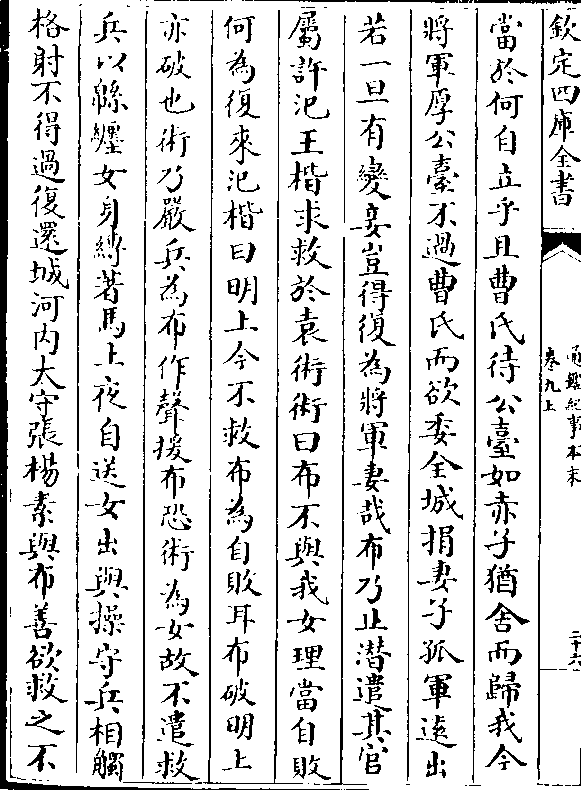 欽定四庫全書
通鑑紀事本末
卷九上
二十六
當於何自立乎且曹氏待公臺如赤子猶舍而歸我今
將軍厚公臺不過曹氏而欲委全城捐妻子孤軍遠出
若一旦有變妾豈得復為將軍妻哉布乃止潛遣其官
屬許汜王楷求救於袁術術曰布不與我女理當自敗
何為復來汜楷曰明上今不救布為自敗耳布破明上
亦破也術乃嚴兵為布作聲援布恐術為女故不遣救
兵以緜纏女身縛著馬上夜自送女出與操守兵相觸
格射不得過復還城河内大守張楊素與布善欲救之不